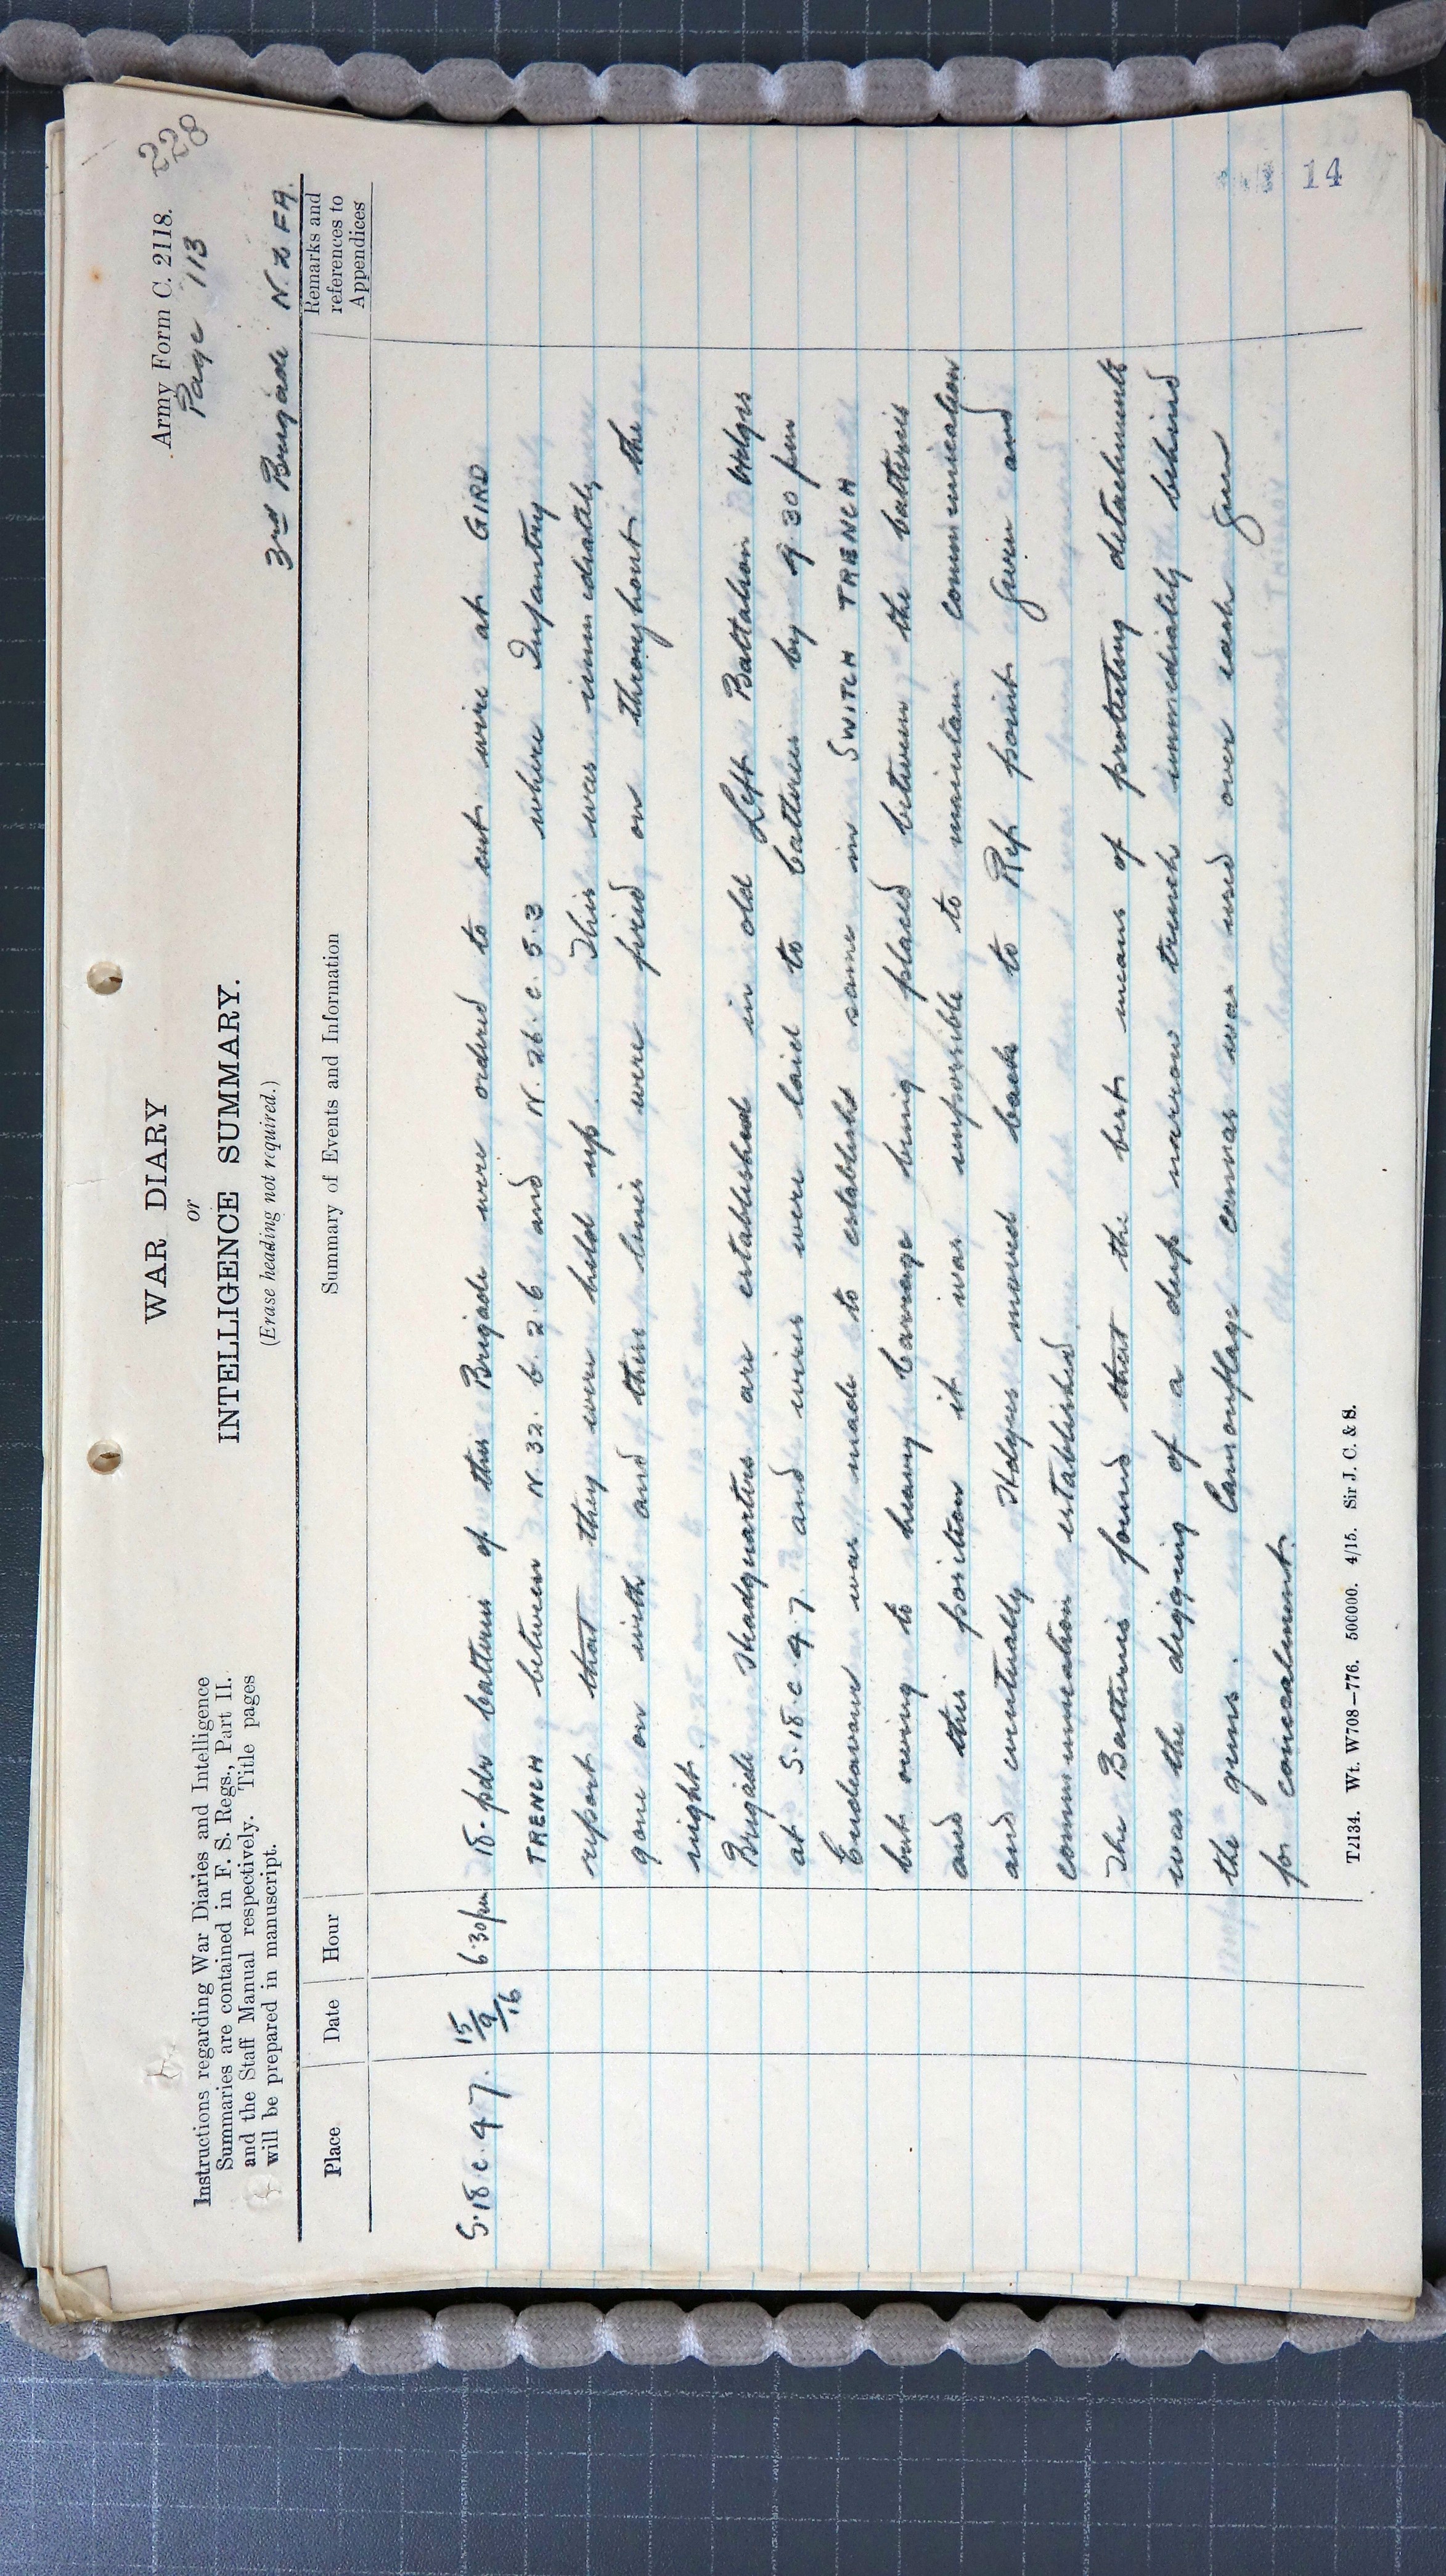 Army Form C. 2118.
228
Page 113
WAR DIARY
or
INTELLIGENCE SUMMARY.
(Erase heading not required.)
3rd Brigade N.Z.F.A.
Instructions regarding War Diaries and Intelligence
Summaries are contained in F. S. Regs., Part II.
and the Staff Manual respectively. Title pages
will be prepared in manuscript.
Place Date Hour Summary of Events and Information Remarks and references to Appendices
S.18.c.4.7. 15/9/16 6.30pm 18-pdr batteries of this Brigade were ordered to cut wire at GIRD
TRENCH between N.32.b.2.6 and N.26.c.5.3 where Infantry
report that they were held up. This was immediately
gone on with and these lines were fired on throughout the
night.
Brigade Headquarters are established in old Left Battalion Hdqrs
at S.18.c.4.7 and wires were laid to batteries by 9.30 pm
Endeavour was made to establish same in SWITCH TRENCH
but owing to heavy barrage being placed between the batteries
and this position it was impossible to maintain communication
and eventually Hdqrs moved back to Ref point given and
communication established.
The Batteries found that the best means of protecting detachments
was the digging of a deep narrow trench immediately behind
the guns. Camouflage canvas was used over each gun
for concealment.
T2134. Wt. W708—776. 500000. 4/15. Sir J. C. & S.
14